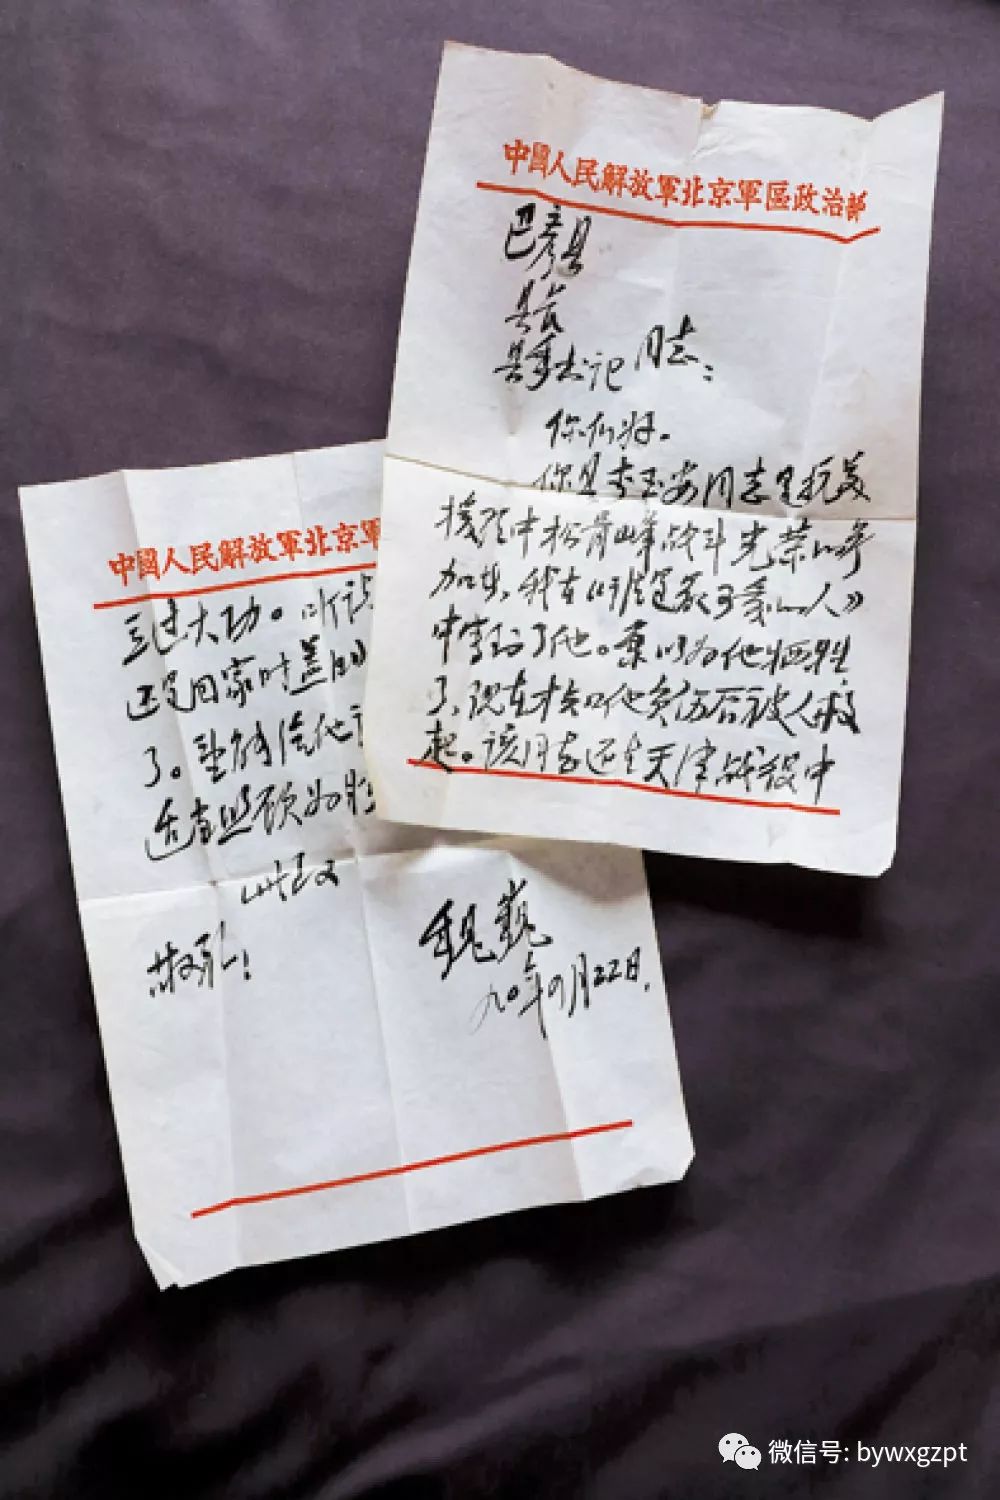 中國人民解放軍北京軍區政治部
巴彦县
县长
县委书记 同志:
你们好。
你县李玉安同志是抗美
援朝中松骨峰战斗光荣的参
加者,我在《谁是最可爱的人》
中写到了他。原以为他牺牲
了,现在才知他负伤后被人救
起。该同志还在天津战役中
中國人民解放軍北京軍
立过大功。听说
还是回家时盖的
了。望能给他
适当照顾为盼
此致
敬礼!
魏巍
九〇年四月22日.
微信号: bywxgzpt